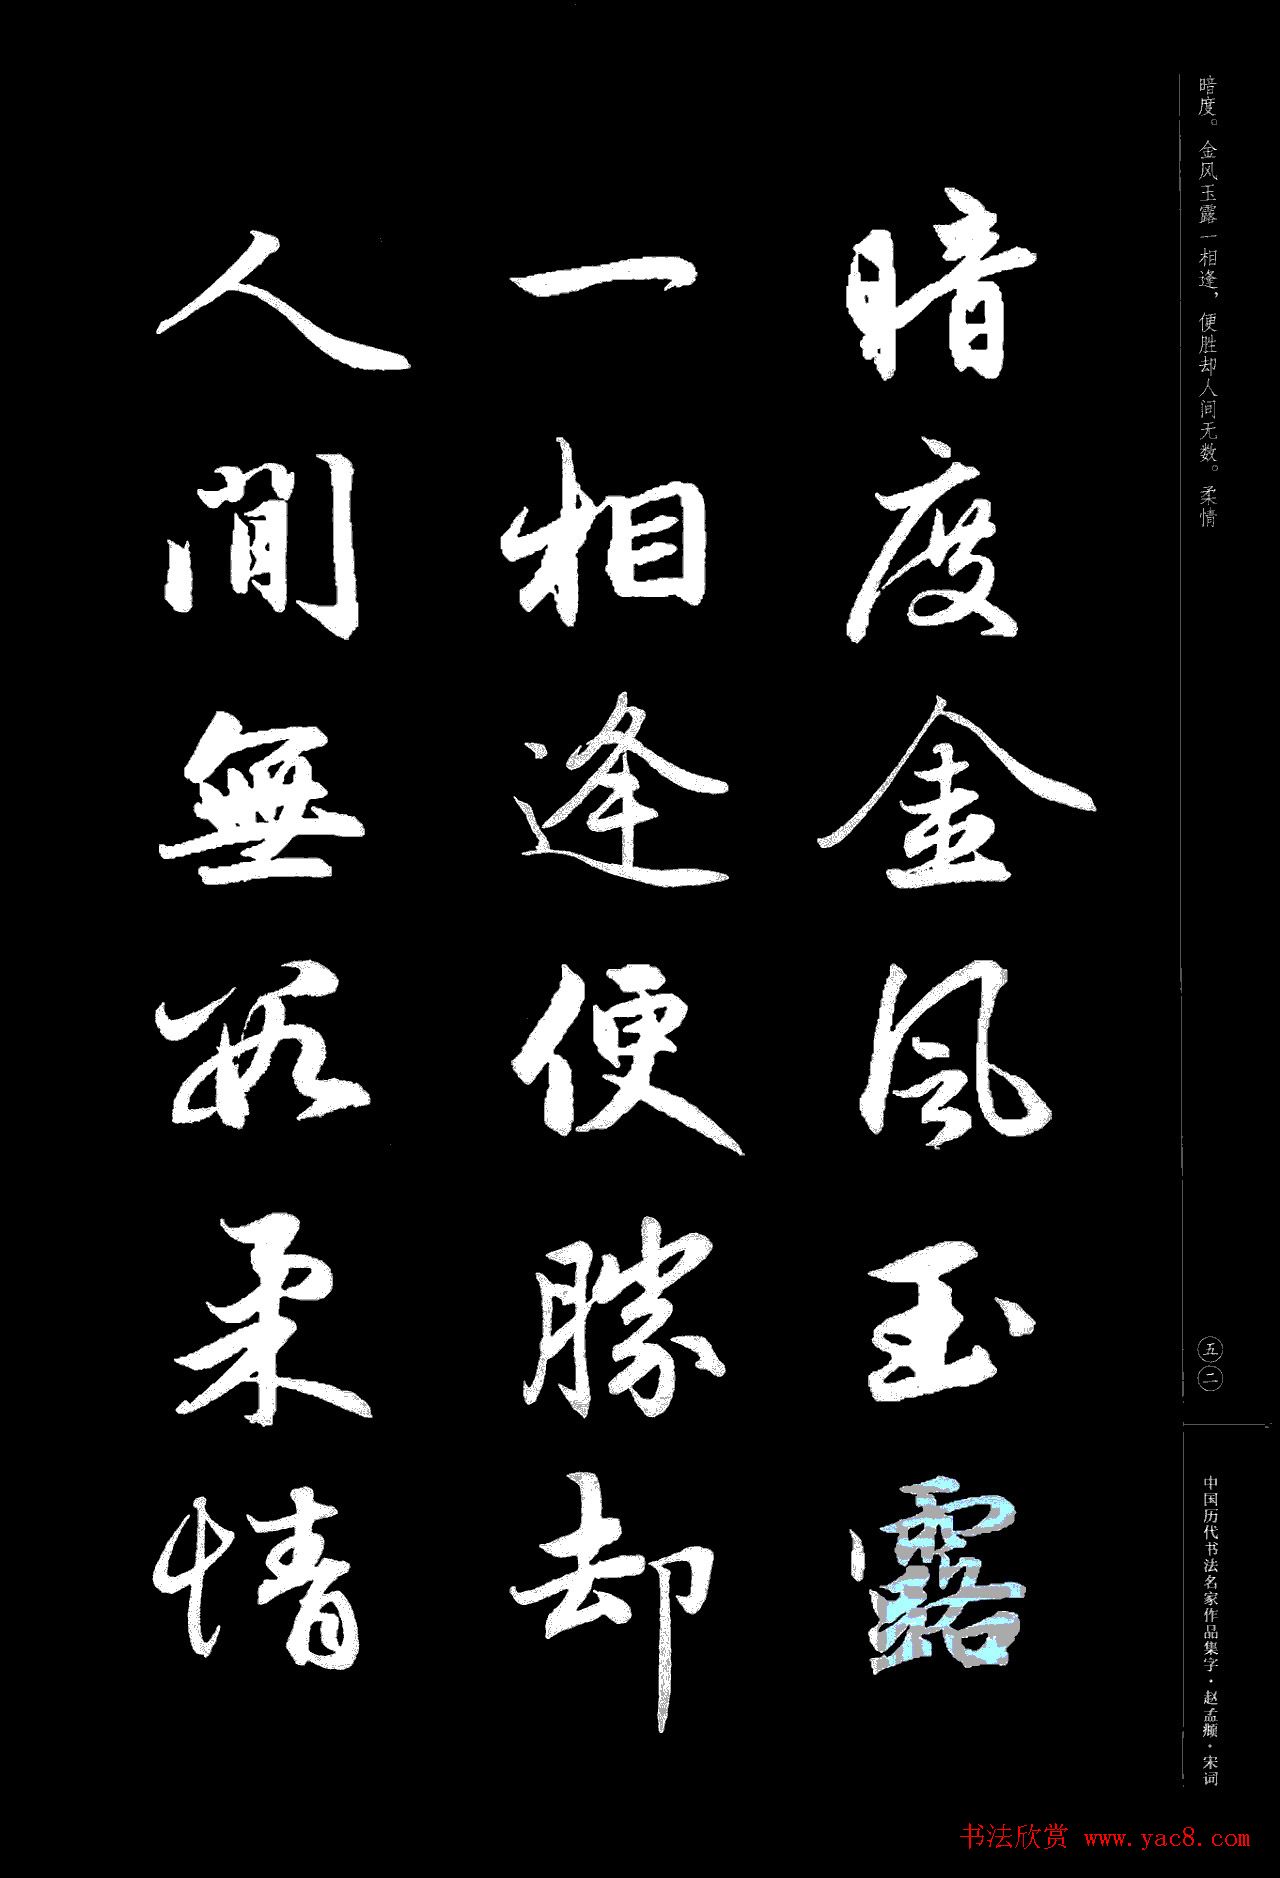 暗度。金风玉露一相逢，便胜却人间无数。柔情
暗度金風玉露
一相逢便勝却
人間無数柔情
五二
中国历代书法名家作品集字·赵孟頫·宋词
书法欣赏 www.yac8.com